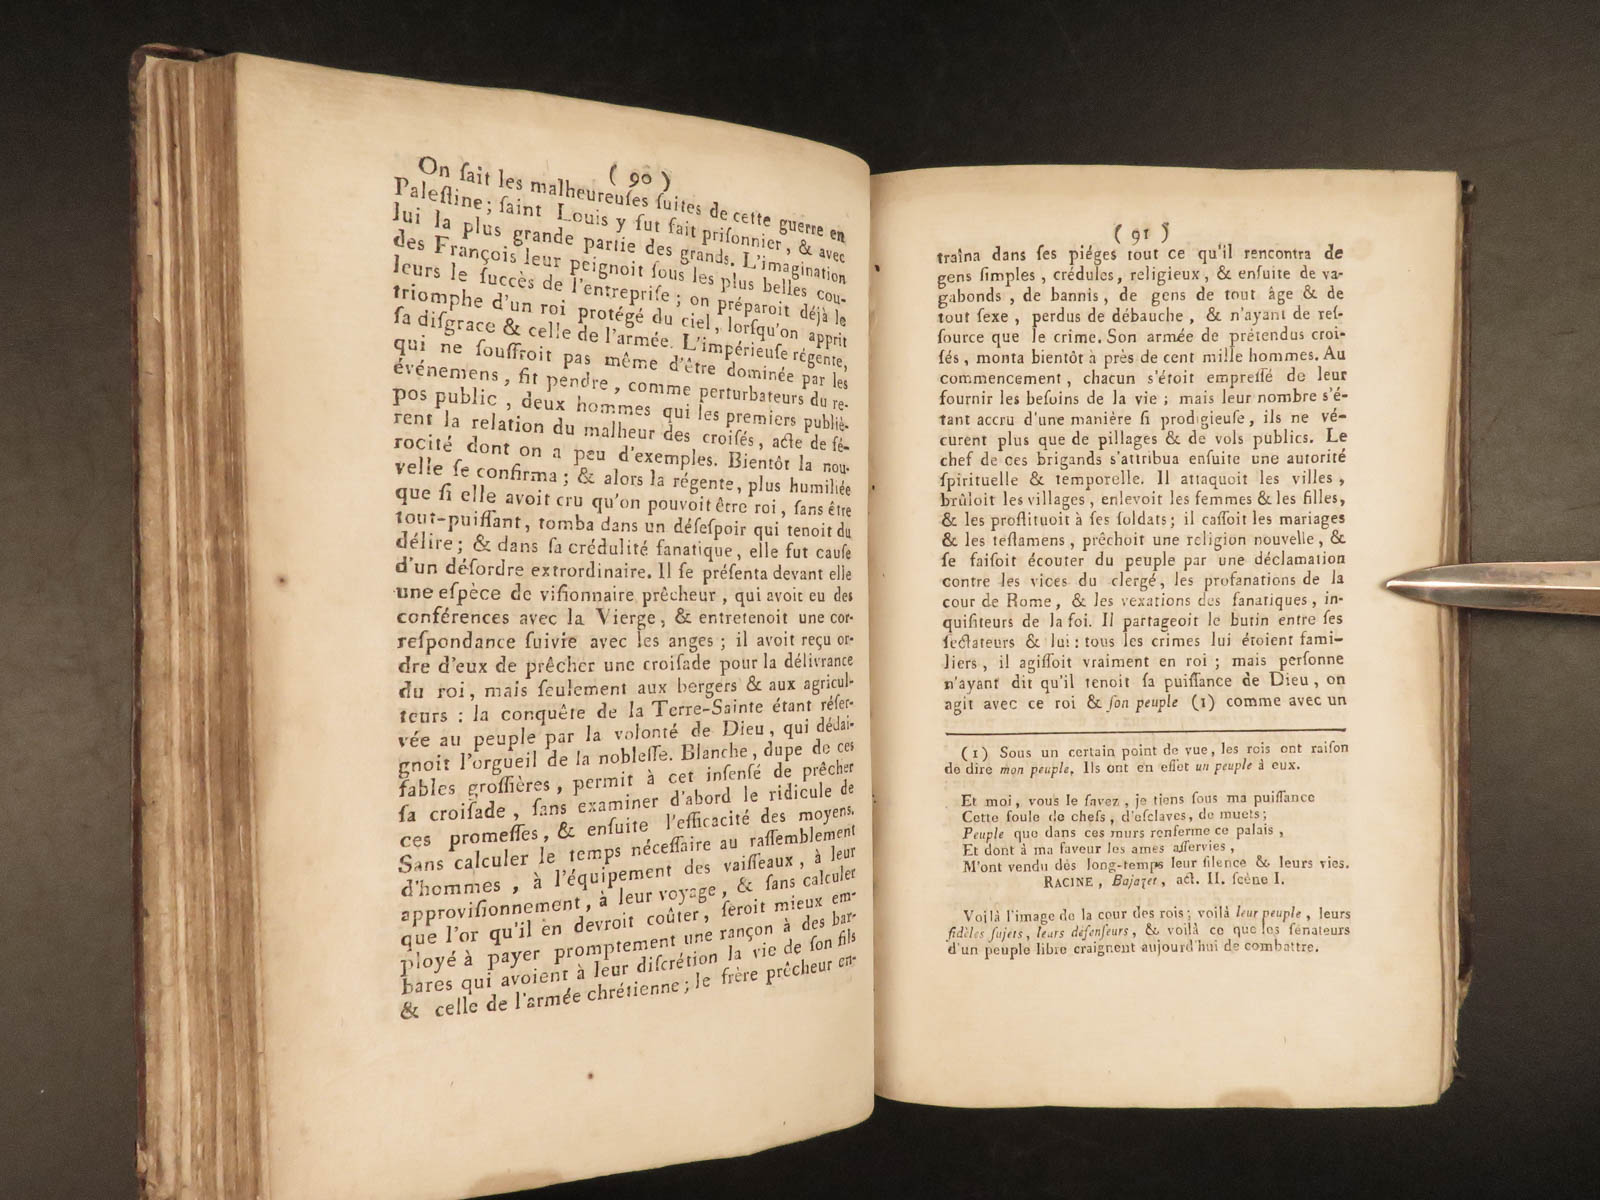 ( 90 )
On ſait les malheureuſes ſuites de cette guerre en
Paleſtine ; ſaint Louis y fut fait priſonnier, & avec
lui la plus grande partie des grands. L'imagination
des François leur peignoit ſous les plus belles cou-
leurs le ſuccès de l'entrepriſe ; on préparoit déjà le
triomphe d'un roi protégé du ciel, lorſqu'on apprit
ſa diſgrace & celle de l'armée. L'impérieuſe régente,
qui ne ſouffroit pas même d'être dominée par les
événemens, fit pendre, comme perturbateurs du re-
pos public, deux hommes qui les premiers publiè-
rent la relation du malheur des croiſés, acte de fé-
rocité dont on a peu d'exemples. Bientôt la nou-
velle ſe confirma ; & alors la régente, plus humiliée
que ſi elle avoit cru qu'on pouvoit être roi, ſans être
tout-puiſſant, tomba dans un déſeſpoir qui tenoit du
délire ; & dans ſa crédulité fanatique, elle fut cauſe
d'un déſordre extrordinaire. Il ſe préſenta devant elle
une eſpèce de viſionnaire prêcheur, qui avoit eu des
conférences avec la Vierge, & entretenoit une cor-
reſpondance ſuivie avec les anges ; il avoit reçu or-
dre d'eux de prêcher une croiſade pour la délivrance
du roi, mais ſeulement aux bergers & aux agricul-
teurs : la conquête de la Terre-Sainte étant réſer-
vée au peuple par la volonté de Dieu, qui dédai-
gnoit l'orgueil de la nobleſſe. Blanche, dupe de ces
fables groſſières, permit à cet inſenſé de prêcher
ſa croiſade, ſans examiner d'abord le ridicule de
ces promeſſes, & enſuite l'efficacité des moyens.
Sans calculer le temps néceſſaire au raſſemblement
d'hommes, à l'équipement des vaiſſeaux, à leur
approviſionnement, à leur voyage, & ſans calculer
que l'or qu'il en devroit coûter, ſeroit mieux em-
ployé à payer promptement une rançon à des bar-
bares qui avoient à leur diſcrétion la vie de ſon fils
& celle de l'armée chrétienne ; le frère prêcheur en-
( 91 )
traîna dans ſes piéges tout ce qu'il rencontra de
gens ſimples, crédules, religieux, & enſuite de va-
gabonds, de bannis, de gens de tout âge & de
tout ſexe, perdus de débauche, & n'ayant de reſ-
ſource que le crime. Son armée de prétendus croi-
ſés, monta bientôt à près de cent mille hommes. Au
commencement, chacun s'étoit empreſſé de leur
fournir les beſoins de la vie ; mais leur nombre s'é-
tant accru d'une manière ſi prodigieuſe, ils ne vé-
curent plus que de pillages & de vols publics. Le
chef de ces brigands s'attribua enſuite une autorité
ſpirituelle & temporelle. Il attaquoit les villes,
brûloit les villages, enlevoit les femmes & les filles,
& les proſtituoit à ſes ſoldats ; il caſſoit les mariages
& les teſtamens, prêchoit une religion nouvelle, &
ſe faiſoit écouter du peuple par une déclamation
contre les vices du clergé, les profanations de la
cour de Rome, & les vexations des fanatiques, in-
quiſiteurs de la foi. Il partageoit le butin entre ſes
ſectateurs & lui : tous les crimes lui étoient fami-
liers, il agiſſoit vraiment en roi ; mais perſonne
n'ayant dit qu'il tenoit ſa puiſſance de Dieu, on
agit avec ce roi & ſon peuple (1) comme avec un
(1) Sous un certain point de vue, les rois ont raiſon
de dire mon peuple. Ils ont en effet un peuple à eux.
Et moi, vous le ſavez, je tiens ſous ma puiſſance
Cette foule de chefs, d'eſclaves, de muets ;
Peuple que dans ces murs renferme ce palais,
Et dont à ma faveur les ames aſſervies,
M'ont vendu dès long-temps leur ſilence & leurs vies.
RACINE, Bajazet, act. II. ſcène I.
Voilà l'image de la cour des rois ; voilà leur peuple, leurs
fidèles ſujets, leurs défenſeurs, & voilà ce que les ſénateurs
d'un peuple libre craignent aujourd'hui de combattre.